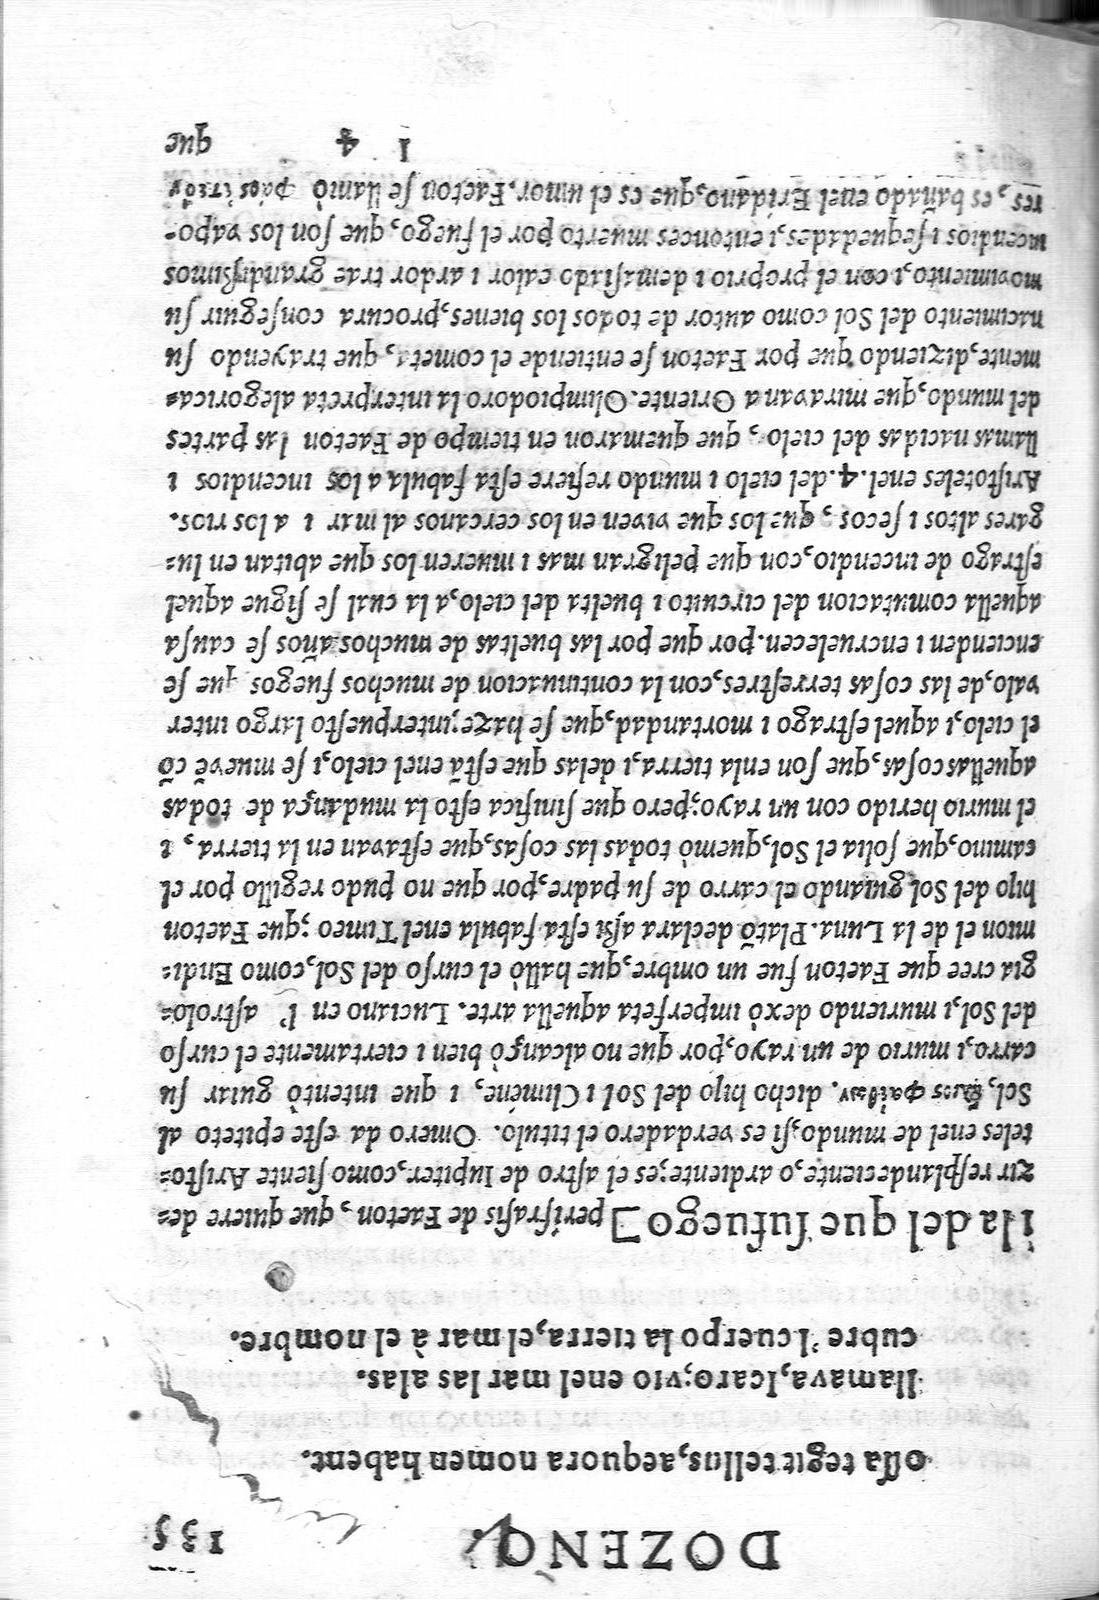 DOZENO. 135
ossa tegit tellus, aequora nomen habent.
llamava, Icaro; vio enel mar las alas.
cubre'l cuerpo la tierra, el mar à el nombre.
i la del que su fuego] perifrasis de Faeton, que quiere de-
zir resplandeciente, o ardiente; es el astro de Iupiter, como siente Aristo-
teles enel de mundo, si es verdadero el titulo. Omero da este epiteto al
Sol, φαέθων. dicho hijo del Sol i Climéne, i que intentò guiar su
carro, i murio de un rayo, por que no alcançò bien i ciertamente el curso
del Sol, i muriendo dexò imperfeta aquella arte. Luciano en l' astrolo-
gia cree que Faeton fue un ombre, que hallò el curso del Sol, como Endi-
mion el de la Luna. Platō declara aßi esta fabula enel Timeo; que Faeton
hijo del Sol guiando el carro de su padre, por que no pudo regillo por el
camino, que solia el Sol, quemò todas las cosas, que estavan en la tierra, i
el murio herido con un rayo; pero que sinifica esto la mudança de todas
aquellas cosas, que son enla tierra, i delas que estā enel cielo, i se muevē cō
el cielo, i aquel estrago i mortandad, que se haze; interpuesto largo inter
valo, de las cosas terrestres, con la continuacion de muchos fuegos que se
encienden i encruelecen. por que por las bueltas de muchos años se causa
aquella comutacion del circuito i buelta del cielo, a la cual se sigue aquel
estrago de incendio, con que peligran mas i mueren los que abitan en lu-
gares altos i secos, que los que viven en los cercanos al mar i a los rios.
Aristoteles enel. 4. del cielo i mundo refiere esta fabula a los incendios i
llamas nacidas del cielo, que quemaron en tiempo de Faeton las partes
del mundo, que miravan a Oriente. Olimpiodoro la interpreta alegorica-
mente, diziendo que por Faeton se entiende el cometa, que trayendo su
nacimiento del Sol como autor de todos los bienes, procura conseguir su
movimiento, i con el proprio i demasiado calor i ardor trae grandißimos
incendios i sequedades, i entonces muerto por el fuego, que son los vapo-
res, es bañado enel Eridano, que es el umor. Faeton se llamò
I 4 que